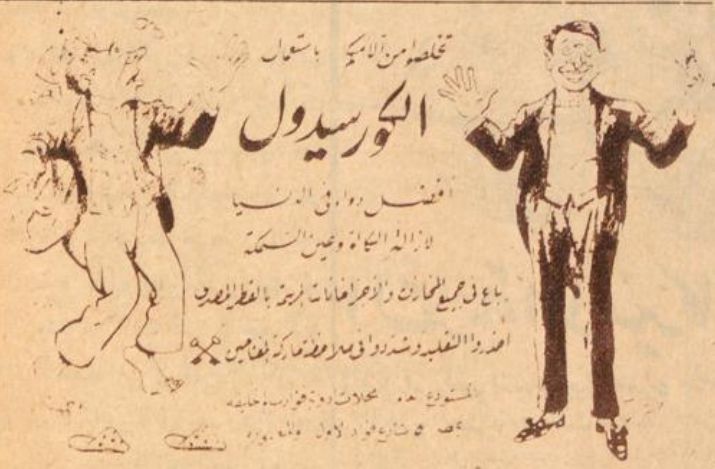 تخلصوا من آلامكم باستعمال
الكورسيدول
أفضل دواء فى الدنيا
لازالة الكالو وعين السمكة
يباع فى جميع المخازن والأجزاخانات الشهيرة بالقطر المصرى
احذروا التقليد وشددوا فى ملاحظة ماركة المقصين
المستودع محلات
شارع فؤاد الاول